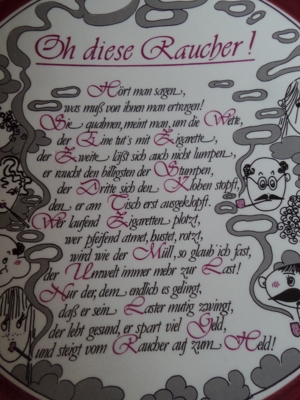 Oh diese Raucher!
Hört man sagen,
was muß von ihnen man ertragen!
Sie qualmen, meint man, um die Wette,
der Eine tut's mit Zigarette,
der Zweite läßt sich auch nicht lumpen,
er raucht den billigsten der Stumpen,
der Dritte sich den Kloben stopft,
den er am Tisch erst ausgeklopft.
Wer laufend Zigaretten plotzt,
wer pfeifend atmet, hustet, rotzt,
wird wie der Müll, so glaub' ich fast,
der Umwelt immer mehr zur Last!
Nur der, dem endlich es gelingt,
daß er sein Laster mutig zwingt,
der lebt gesund, er spart viel Geld,
und steigt vom Raucher auf zum Held!